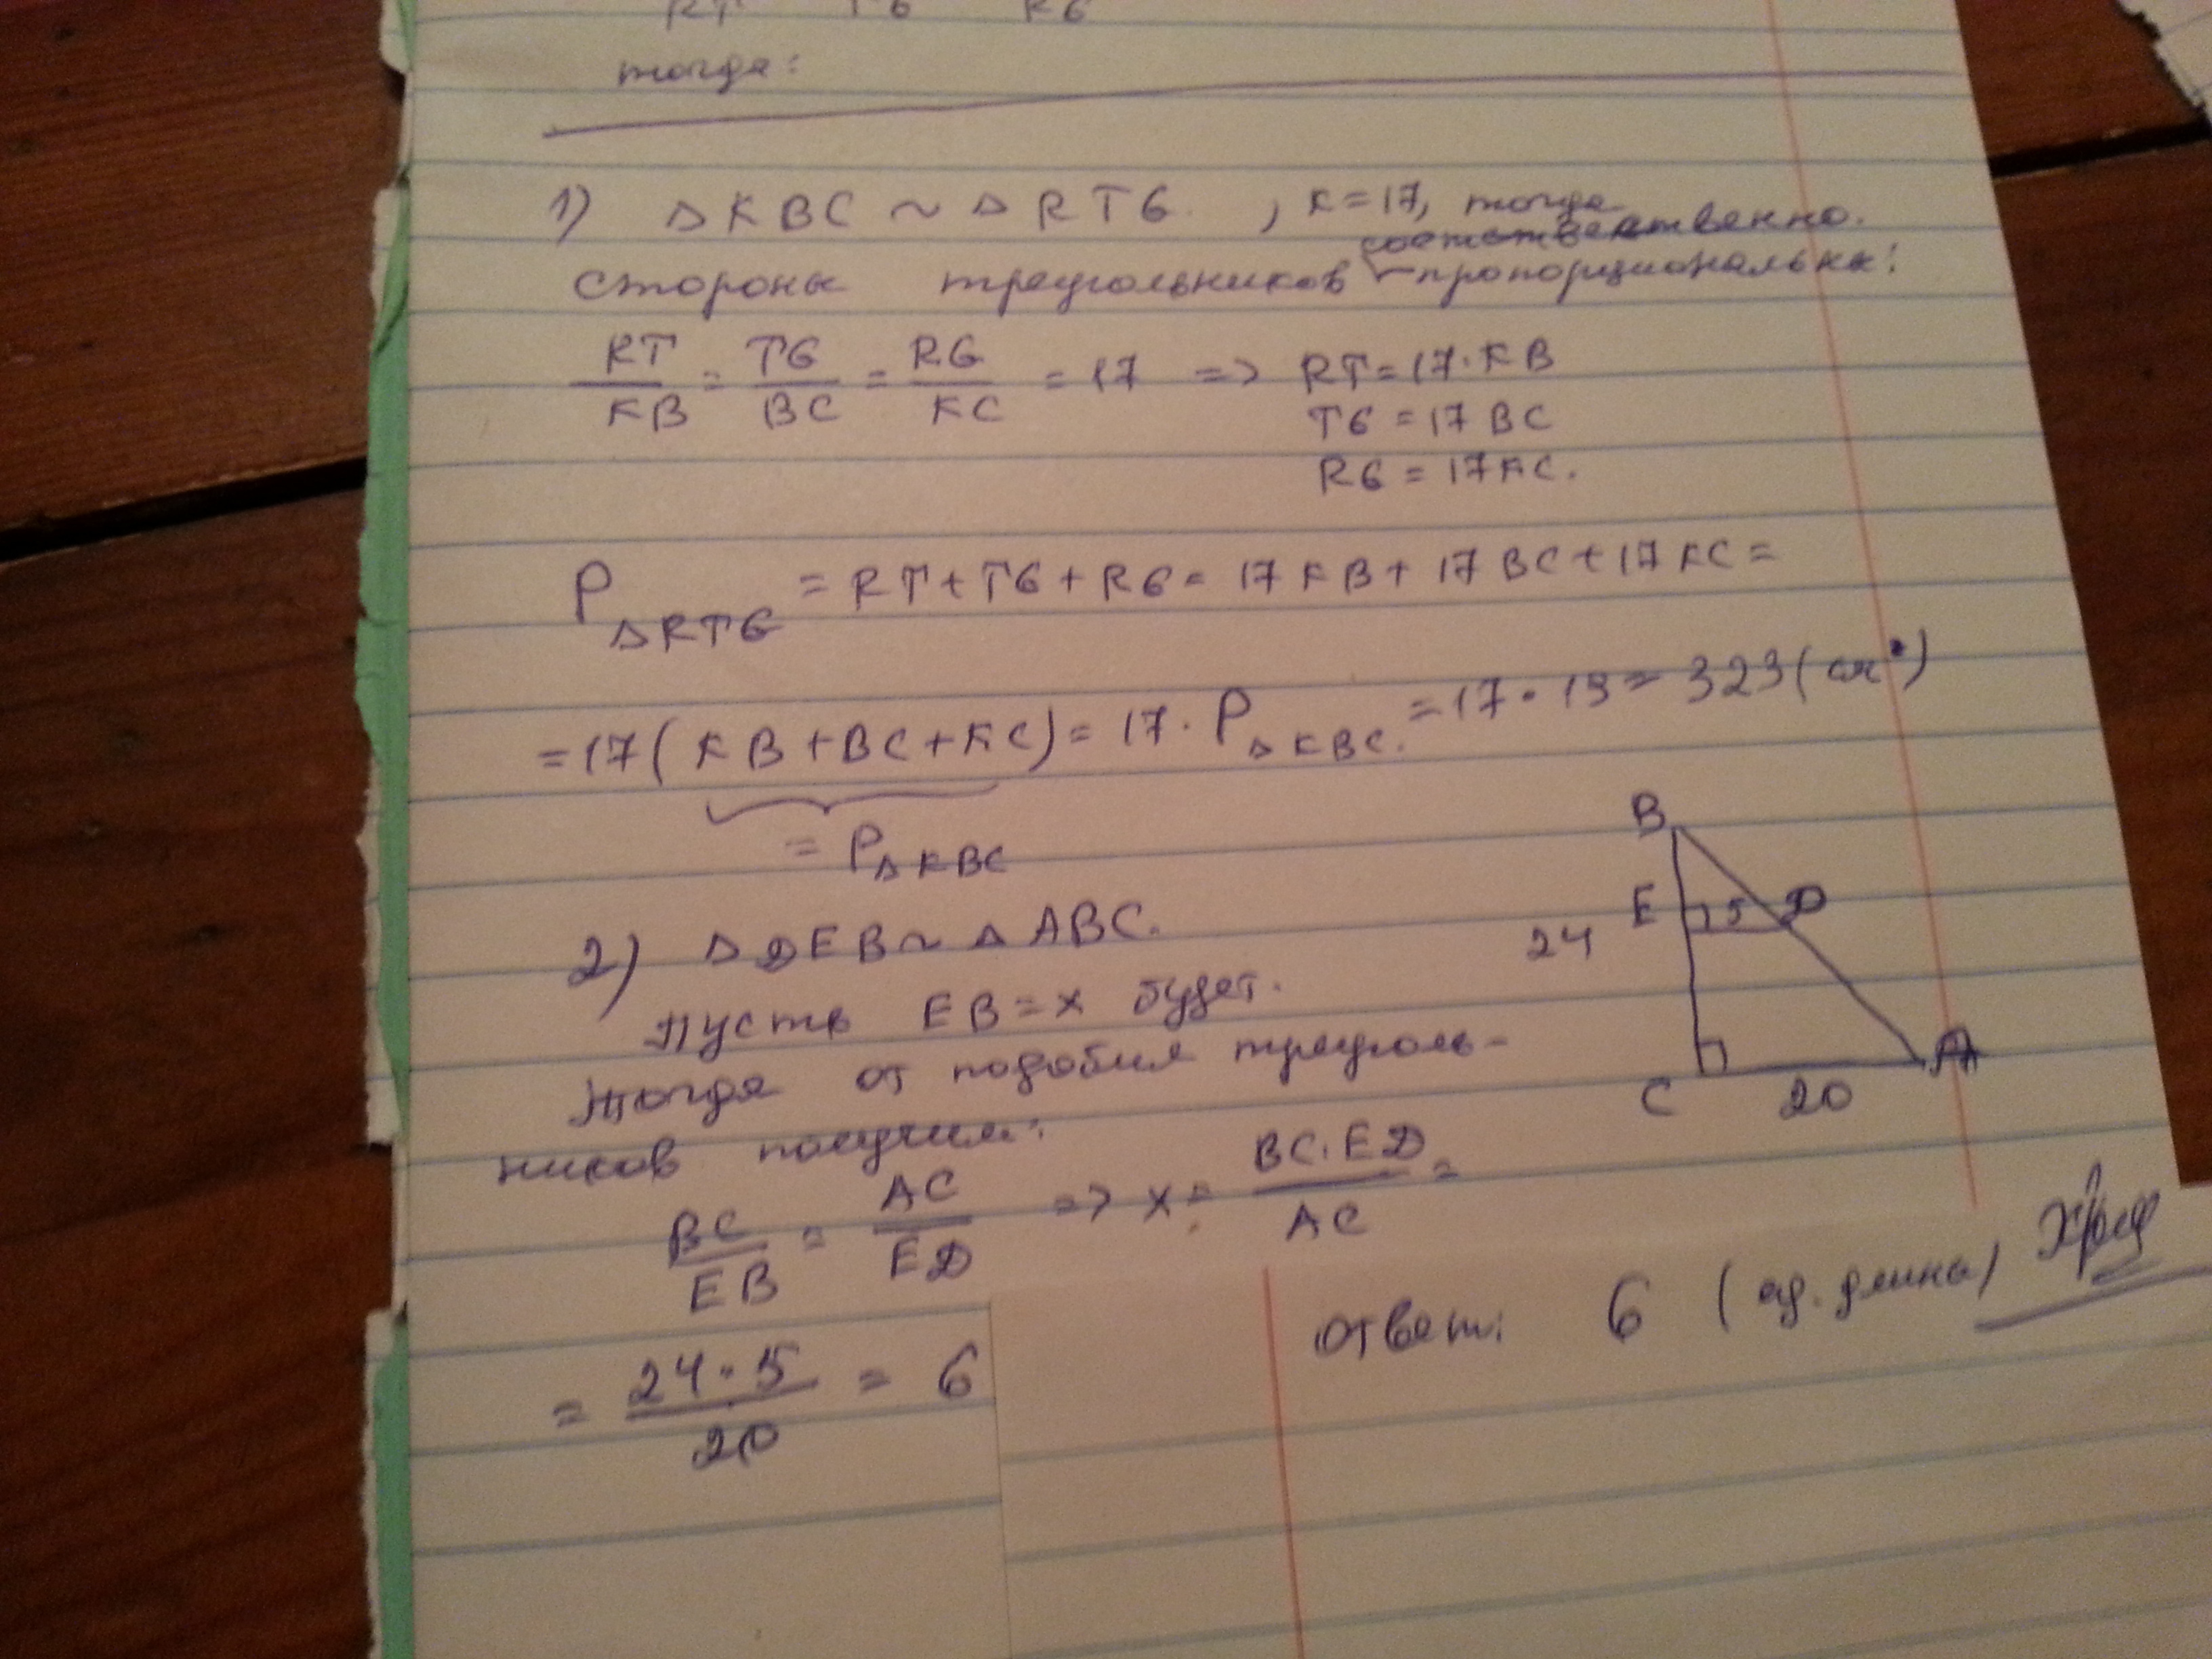 RT TG RG
тогда:
1) ΔKBC ~ ΔRTG, K=17, тогда
соответственно.
стороны треугольников пропорциональны:
RT/KB = TG/BC = RG/KC = 17 => RT=17·KB
TG=17BC
RG=17KC.
P ΔRTG = RT+TG+RG= 17KB+17BC+17KC=
=17(KB+BC+KC)=17·P ΔKBC.=17·19=323(см)
=PΔKBC
2) ΔDEB~ΔABC.
Пусть EB=x будет.
Тогда от подобия треуголь-
ников получим:
BC/EB = AC/ED => x= BC·ED/AC =
= 24·5/20 = 6
Ответ: 6 (ед. длины)
B
E 5 D
24
C 20 A